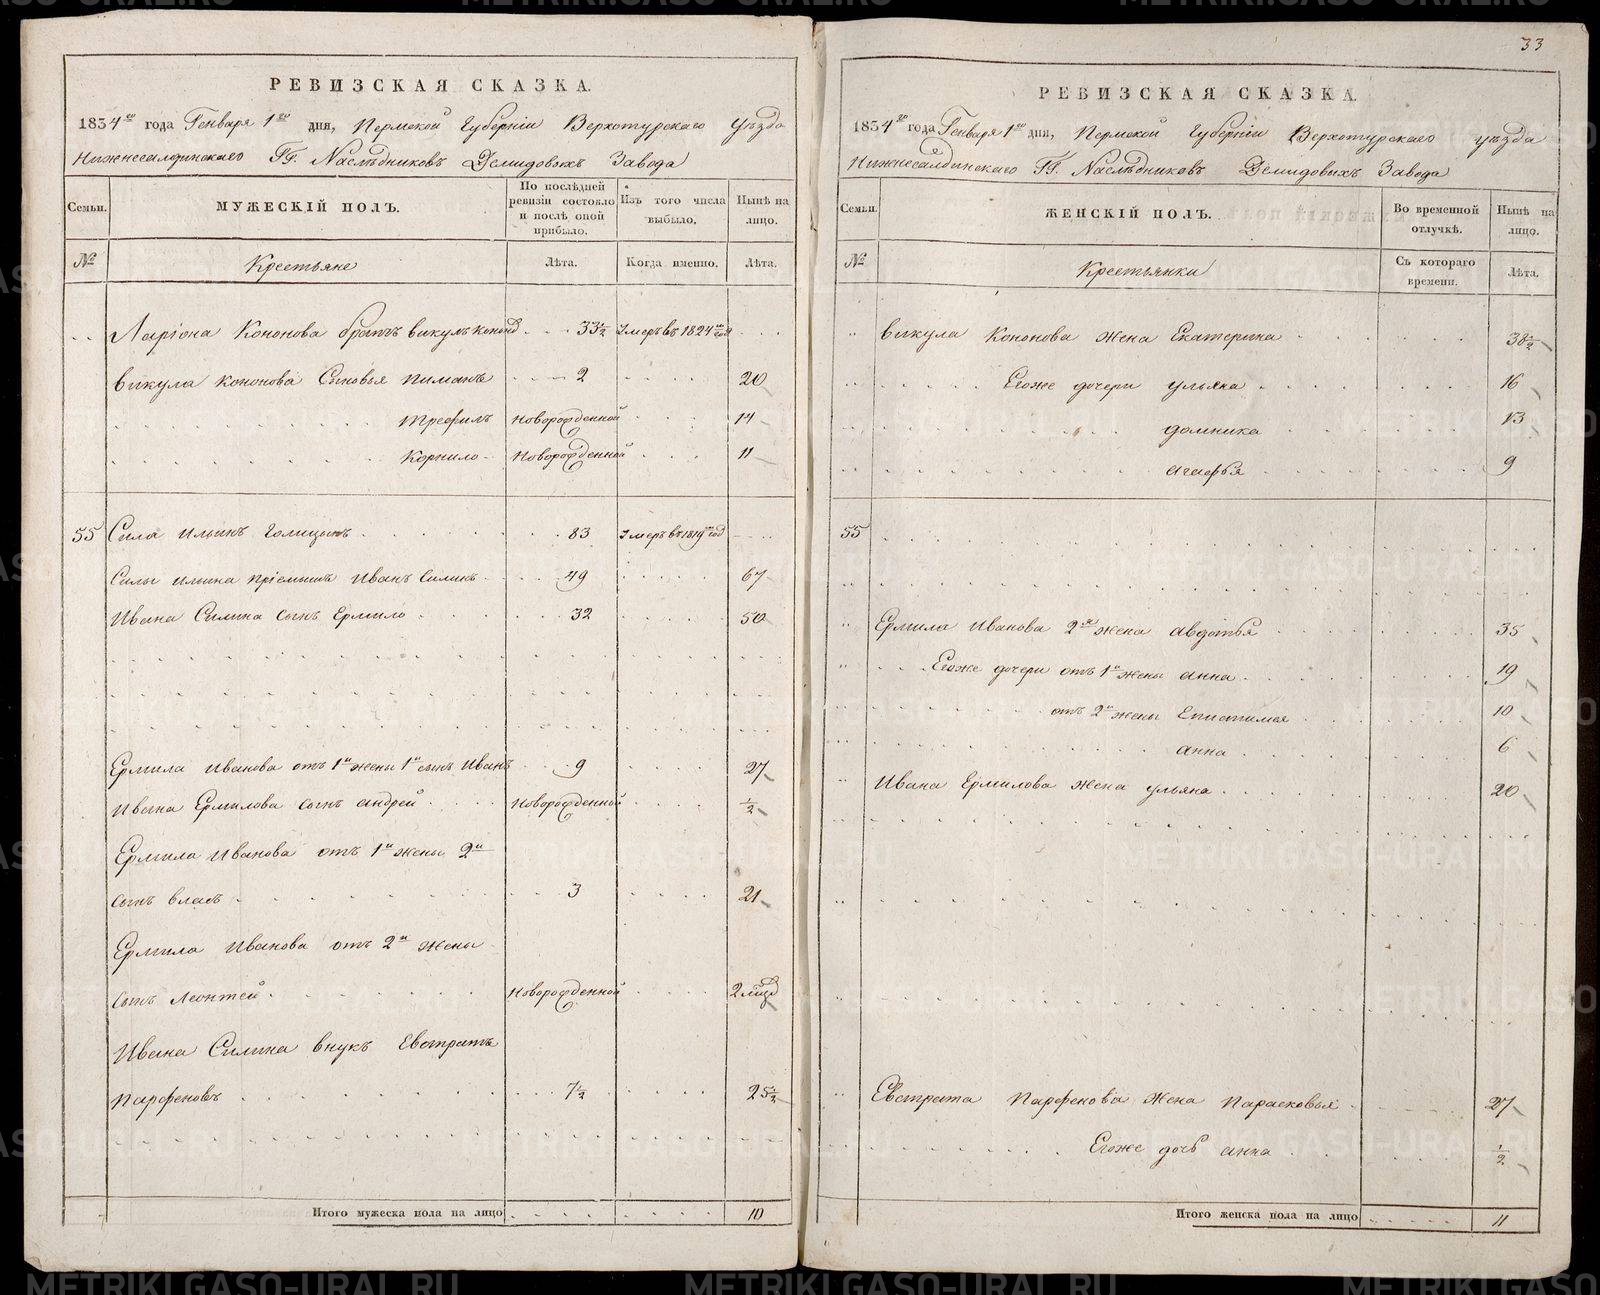 РЕВИЗСКАЯ СКАЗКА.
1834го года Генваря 1го дня, Пермской Губернiи Верхотурскаго уѣзда
Нижнесалдинскаго ГГ. Наслѣдниковъ Демидовыхъ Завода
Семьи. МУЖЕСКIЙ ПОЛЪ. По послѣдней ревизiи состояло и послѣ оной прибыло. Изъ того числа выбыло. Нынѣ на лицо.
№ Крестьяне Лѣта. Когда именно. Лѣта.
Ларiона Кононова братъ викулъ 33½ Умеръ въ 1824
викула кононова Сыновья пиманъ 2 20
трефилъ Новорожденной 14
Корнило Новорожденной 11
55 Сила ильинъ Голицынъ 83 Умеръ въ 1819 год
Силы ильина прiемышъ Иванъ Силинъ 49 67
Ивана Силина сынъ Ермило 32 50
Ермила Иванова отъ 1й жены 1й сынъ Иванъ 9 27
Ивана Ермилова сынъ андрей Новорожденной ½
Ермила Иванова отъ 1й жены 2й
сынъ власъ 3 21
Ермила Иванова отъ 2й жены
сынъ Леонтей Новорожденной 2
Ивана Силина внукъ Евстратъ
парфеновъ 7½ 25½
Итого мужеска пола на лицо 10
33
РЕВИЗСКАЯ СКАЗКА.
1834го года Генваря 1го дня, Пермской Губернiи Верхотурскаго уѣзда
Нижнесалдинскаго ГГ. Наслѣдниковъ Демидовыхъ Завода
Семьи. ЖЕНСКIЙ ПОЛЪ. Во временной отлучкѣ. Нынѣ на лицо.
№ Крестьянки Съ котораго времени. Лѣта.
викула Кононова жена Екатерина 38½
Егоже дочери ульяна 16
домника 13
агафья 9
55
Ермила Иванова 2я жена авдотья 35
Егоже дочери отъ 1й жены анна 19
отъ 2й жены Епистимея 10
анна 6
Ивана Ермилова жена ульяна 20
Евстрата парфенова жена парасковья 27
Егоже дочь анна ½
Итого женска пола на лицо 11
METRIKI.GASO-URAL.RU